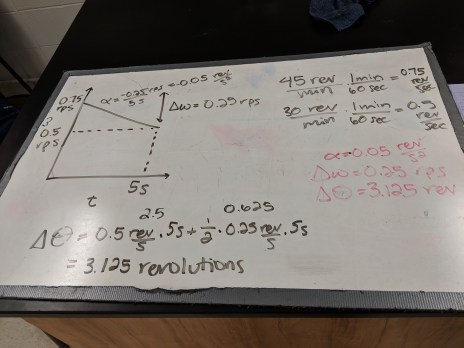 0.75 rps
α = -0.25 rev/5s = -0.05 rev/s/s
Δω = 0.25 rps
0.5 rps
t
5s
45 rev/min · 1min/60 sec = 0.75 rev/sec
30 rev/min · 1min/60 sec = 0.5 rev/sec
α = 0.05 rev/s/s
Δω = 0.25 rps
Δθ = 3.125 rev
2.5 0.625
Δθ = 0.5 rev/s · 5s + 1/2 · 0.25 rev/s · 5s
= 3.125 revolutions